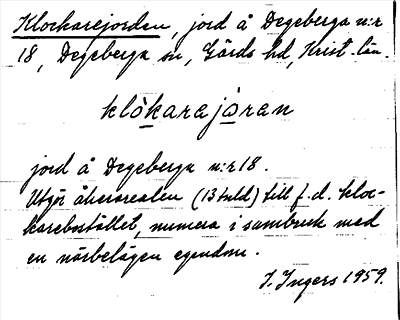 Klockarejorden, jord å Degeberga n:r
18, Degeberga sn, Gärds hd, Krist. län.
klåkarajoran
jord å Degeberga n:r 18.
Utgör åkerarealen (13 tnld) till f.d. kloc-
karebostället, numera i sambruk med
en närbelägen egendom.
I. Ingers 1959.